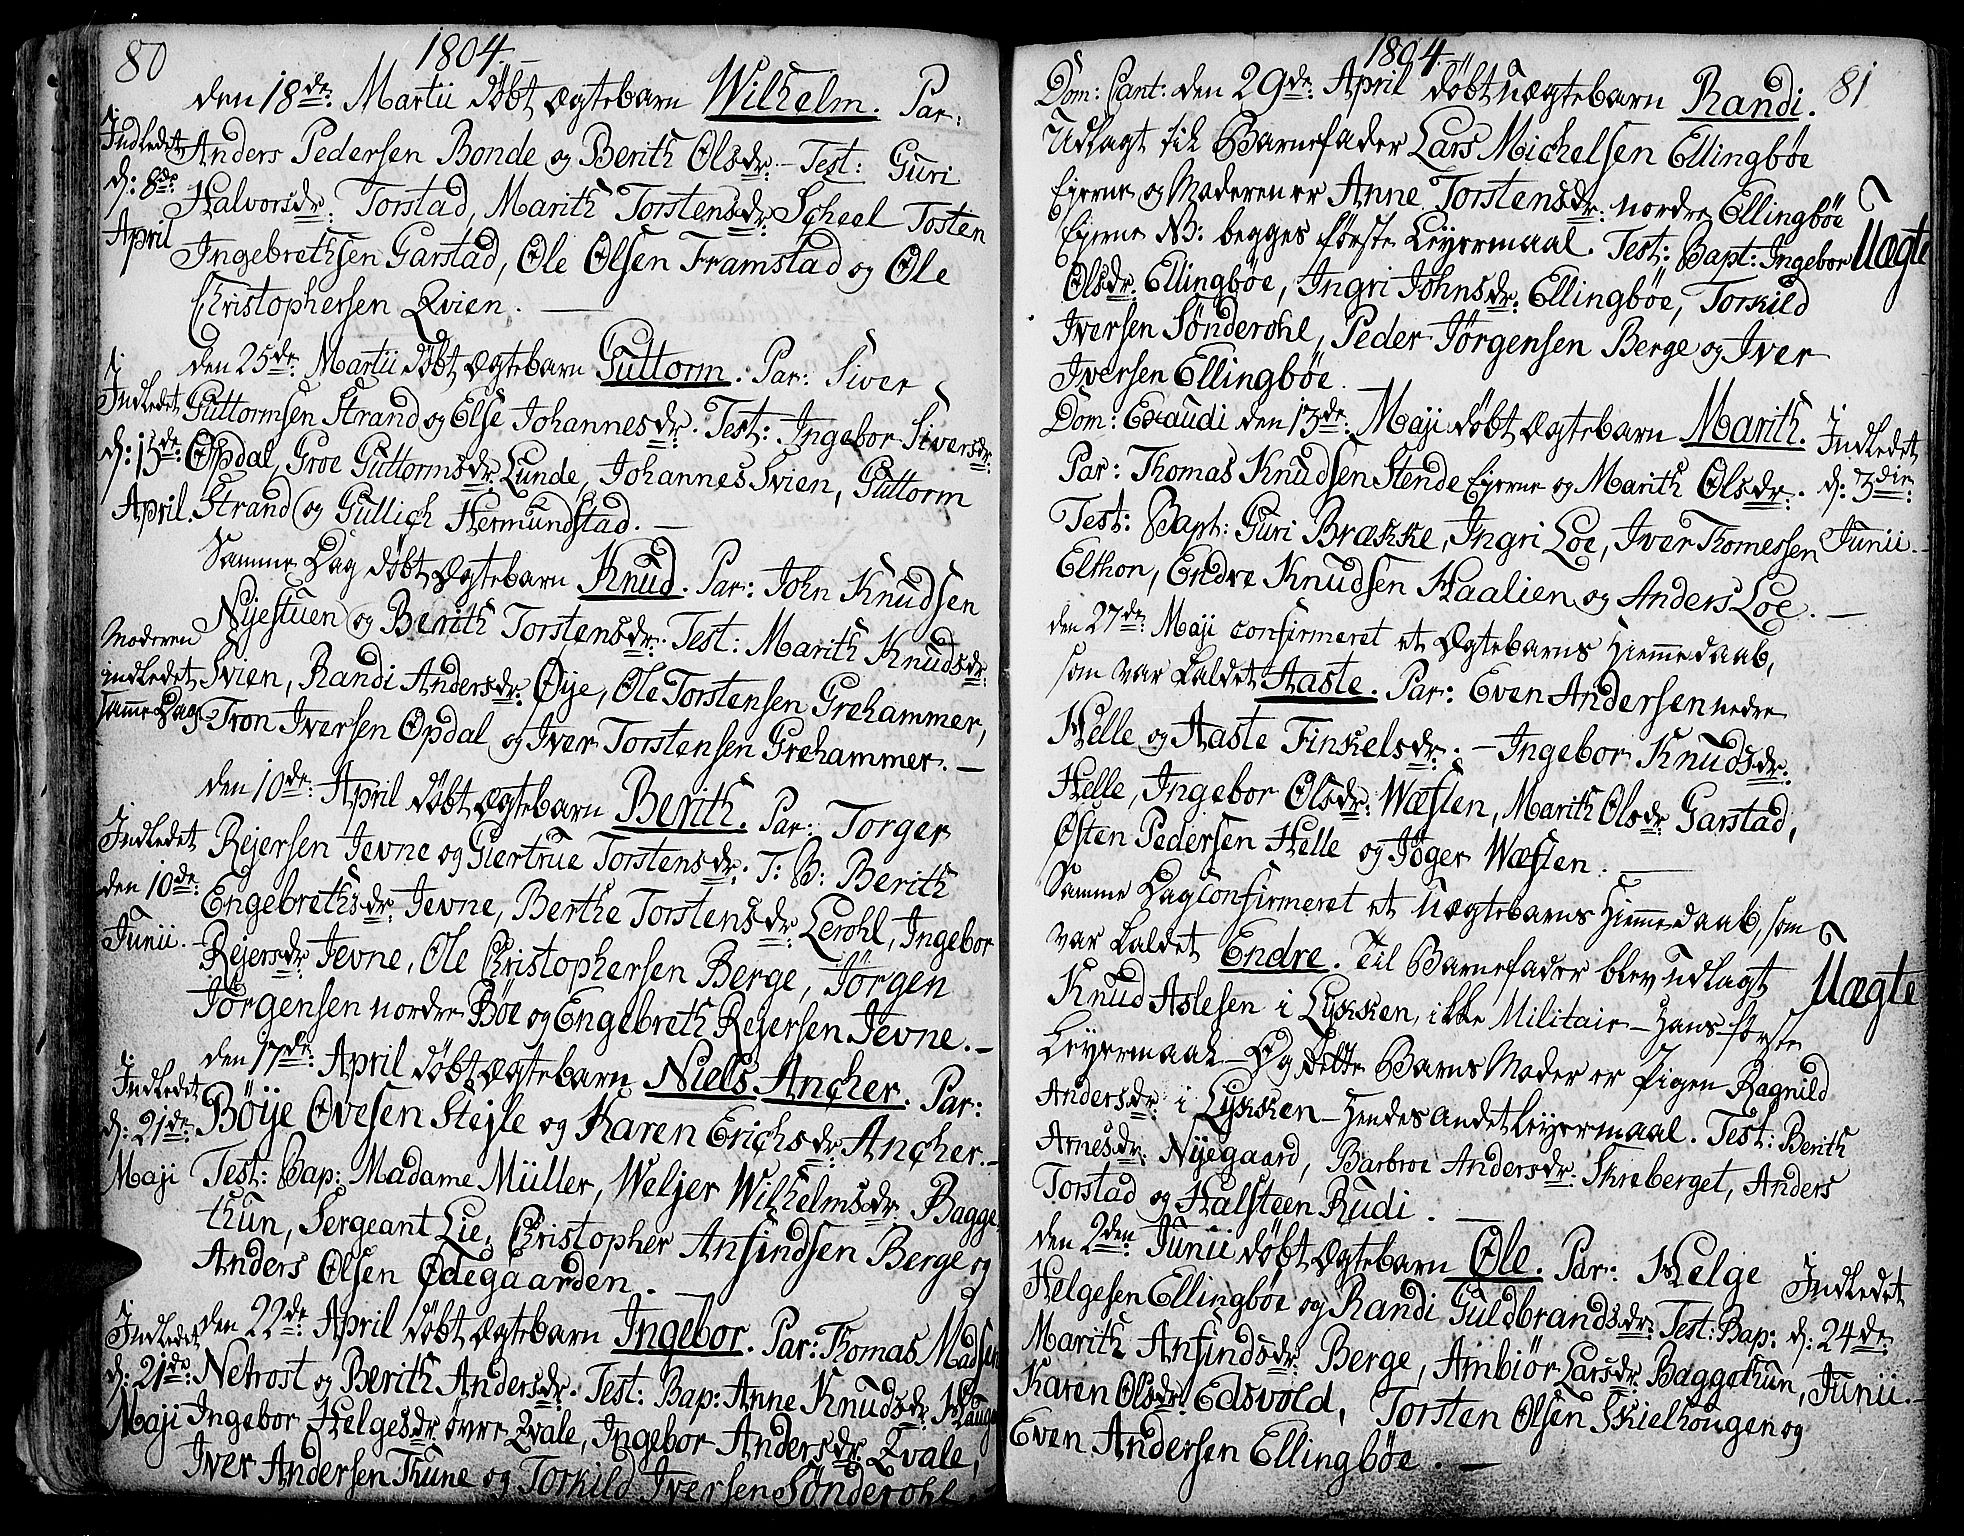 80
1804.
den 18de: Martii døbt Ægtebarn Wilhelm. Par:
Indledet
d: 8de
April
Anders Pedersen Bonde og Berith Olsdr: – Test: Guri
Halvorsdr: Torstad, Marith Torstensdr: Scheel Tosten
Ingebrethsen Garstad, Ole Olsen Framstad og Ole
Christophersen Qvien. —
den 25de: Martii døbt Ægtebarn Guttorm. Par: Siver
Indledet
d: 15de:
April.
Guttormsen Strand og Else Johannesdr: Test: Ingebor Siversdr:
Opdal, Groe Guttormsdr: Lunde, Johannes Svien, Guttorm
Strand og Gullich Hermundstad. —
Samme Dag døbt Ægtebarn Knud. Par: John Knudsen
Moderen
indledet
samme Dag
Nyestuen og Berith Torstensdr: Test: Marith Knudsdr:
Svien, Randi Andersdr: Øye, Ole Torstensen Grehammer,
Tron Iversen Opdal og Iver Torstensen Grehammer. —
den 10de: April døbt Ægtebarn Berith. Par: Torger
Indledet
den 10de:
Junii.
Rejersen Jevne og Giertrue Torstensdr: T: B: Berith
Engebrethsdr: Jevne, Berthe Torstensdr: Lerohl, Ingebor
Rejersdr: Jevne, Ole Christophersen Berge, Jørgen
Jørgensen nordre Bøe og Engebreth Rejersen Jevne. —
den 17de: April døbt Ægtebarn Niels Ancher. Par:
Indledet
d: 21de:
Maji
Bøije Ovesen Stejle og Karen Erichsdr: Ancher. –
Test: Bap: Madame Müller, Weljer Wilhelmsdr: Bagge
thun, Sergeant Lie, Christopher Anfindsen Berge og
Anders Olsen Ødegaarden. —
den 22de: April døbt Ægtebarn Ingebor. Par: Thomas Madsen
Indledet
d: 21de:
Maji
Nefrost og Berith Andersdr: Test: Bap: Anne Knudsdr: Hauge
Ingebor Helgesdr: øvre Qvale, Ingebor Andersdr: Qvale,
Iver Andersen Thune og Torkild Iversen Sønderohl.
1804.
81
Dom: Cant: den 29de: April døbt Uægtebarn Randi.
Udlagt til Barnefader Lars Michelsen Ellingbøe
Ejerne og Moderen er Anne Torstensdr: nordre Ellingbøe
Ejerne NB: begges første Leyermaal. Test: Bapt: Ingebor
Uægte
Olsdr: Ellingbøe, Ingri Johnsdr: Ellingbøe, Torkild
Iversen Sønderohl, Peder Jørgensen Berge og Iver
Iversen Ellingbøe. —
Dom: Exaudi den 13de: Maji døbt Ægtebarn Marith.
Indledet
d: 3die:
Junii. –
Par: Thomas Knudsen Stende Ejerne og Marith Olsdr:
Test: Bapt: Guri Brække, Ingri Loe, Iver Thomessen
Elthon, Endre Knudsen Haalien og Anders Loe. —
den 27de: Maji confirmeret et Ægtebarns Hjemmedaab,
som var kaldet Aaste. Par: Even Andersen nedre
Helle og Aaste Finkelsdr: – Ingebor Knudsdr:
Helle, Ingebor Olsdr: Wæslen, Marith Olsdr: Garstad,
Østen Pedersen Helle og Jøger Wæslen. —
Samme Dag confirmeret et Uægtebarns Hjemmedaab, som
var kaldet Endre. Til Barnefader blev udlagt
Uægte
Knud Aslesen i Lykken, ikke Militair – Hans første
Leyermaal – Og dette Barns Moder er Pigen Ragnild
Andersdr: i Lykken – Hendes andet Leyermaal. Test: Berith
Arnesdr: Nyegaard, Barbroe Andersdr: Skreberget, Anders
Torstad og Halsteen Rudi. —
den 2den: Junii døbt Ægtebarn Ole. Par: Helge
Indledet
d: 24de:
Junii. –
Helgesen Ellingbøe og Randi Guldbrandsdr: Test: Bap:
Marith Anfindsdr: Berge, Ambiør Larsdr: Baggethun,
Karen Olsdr: Edsvold, Torsten Olsen Skielhougen og
Even Andersen Ellingbøe. —